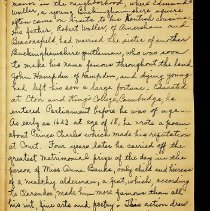 known in the neighborhood, where Edmund
Waller, a young Buckinghamshire squire
often came on visits to his Kentish cousins.
His father, Robert Waller, of Amersham and
Beaconsfield had married the sister of another
Buckinghamshire gentleman, who was soon
to make his name famous throughout the land
John Hampden of Hampden, and dying young
had left his son a large fortune. Educated
at Eton and King's College, Cambridge, he
entered Parliament before he was of age.
As early as 1623 at age of 18, he wrote a poem
about Prince Charles which made his reputation
at Court. Four years later he carried off the
greatest matrimonial prize of the day in the
person of Miss Anne Banks, only child and heiress
of a wealthy alderman, a feat which, according
to Clarendon made him more famous than all
his wit, fine arts and poetry. This action drew